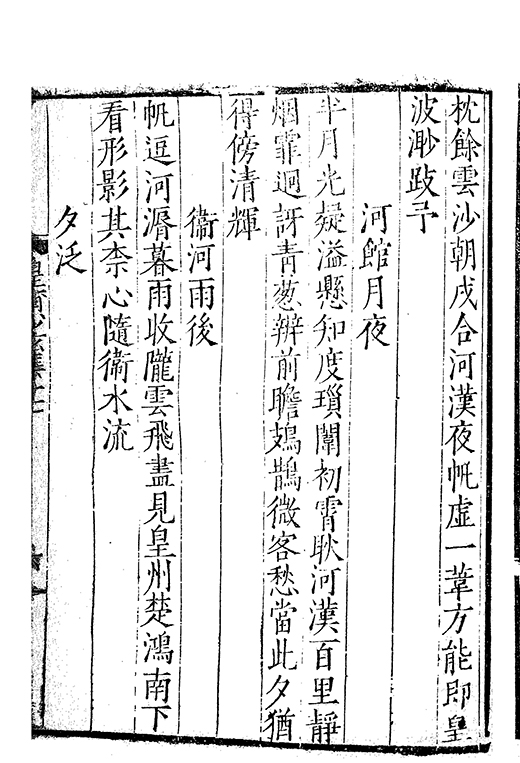 枕餘雲沙朝戍合河漢夜帆虛一葦方能即皇
波渺跂予
河館月夜
半月光凝溢懸知度瑣闈初霄耿河漢百里靜
烟霏迥訝青葱辨前瞻鳷鵲微客愁當此夕猶
得傍清輝
衞河雨後
帆逗河漘暮雨收隴雲飛盡見皇州楚鴻南下
看形影其柰心隨衞水流
夕泛